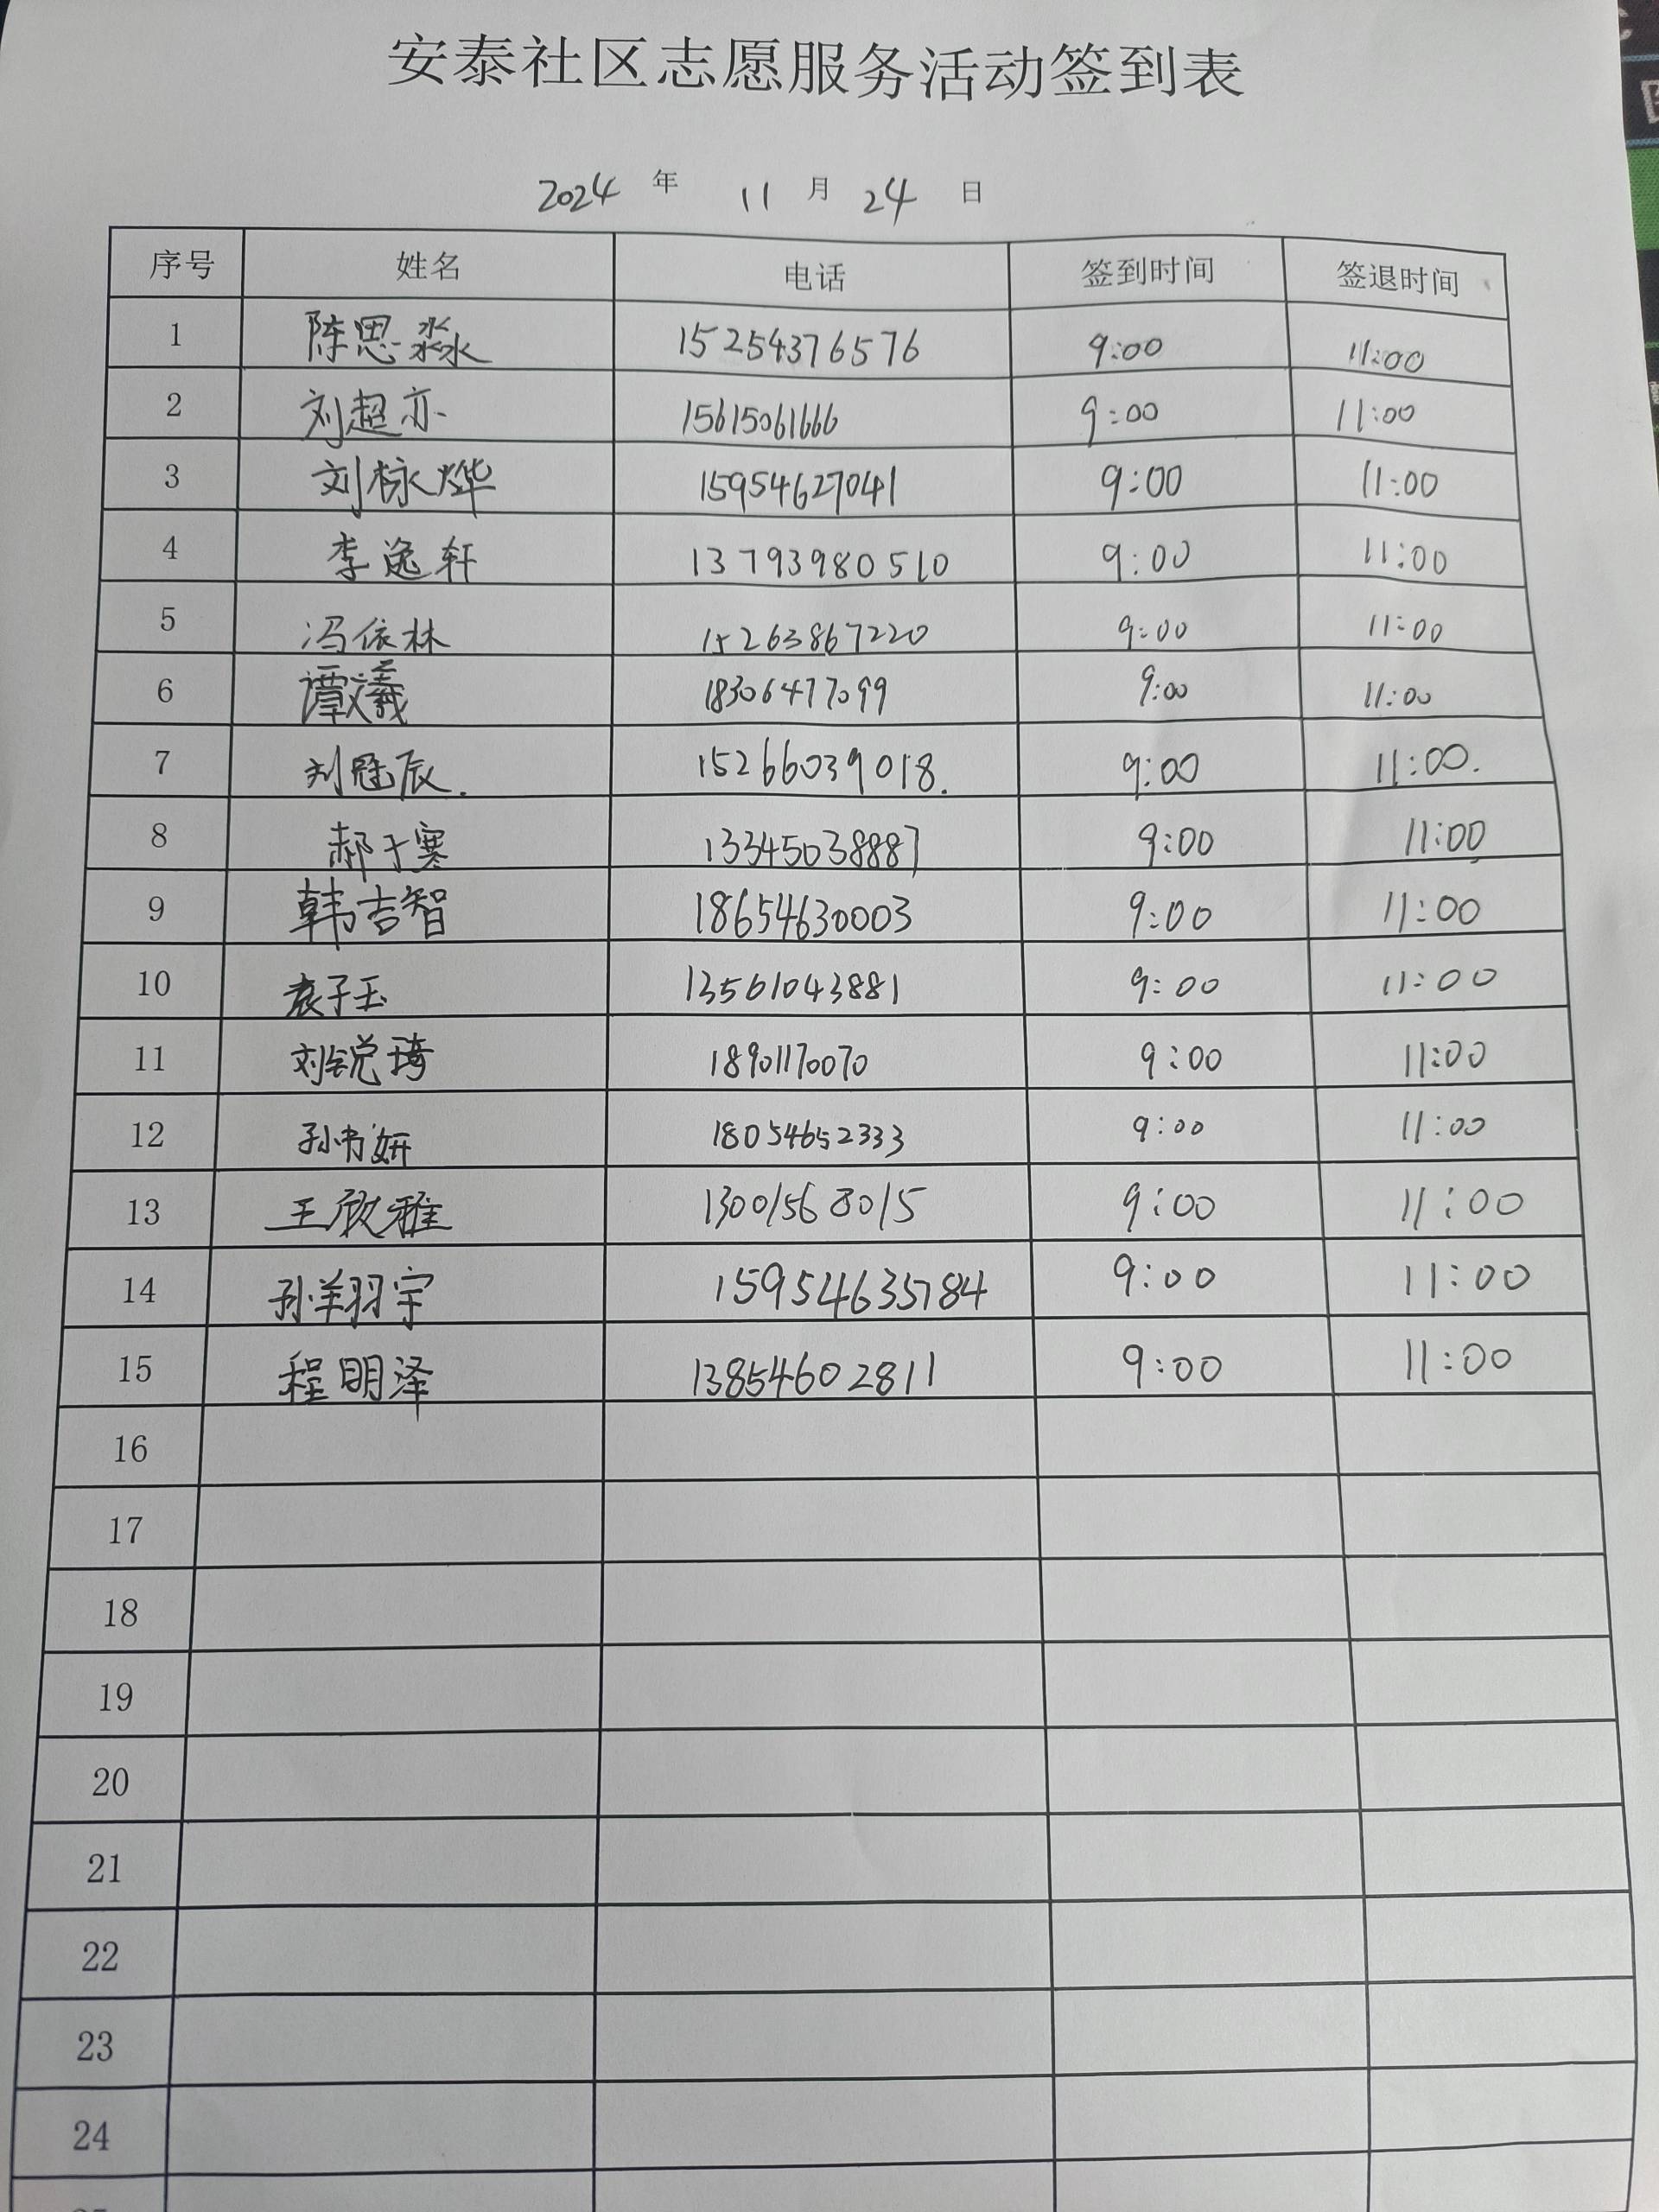 安泰社区志愿服务活动签到表
2024 年 11 月 24 日
序号 姓名 电话 签到时间 签退时间
1 陈思淼 15254376576 9:00 11:00
2 刘超亦 15615061666 9:00 11:00
3 刘栐烨 15954627041 9:00 11:00
4 李逸轩 13793980510 9:00 11:00
5 冯依林 15263867220 9:00 11:00
6 谭文羲 18306477099 9:00 11:00
7 刘冠辰. 15266039018. 9:00 11:00.
8 郝于寒 13345038887 9:00 11:00
9 韩吉智 18654630003 9:00 11:00
10 袁子玉 13561043881 9:00 11:00
11 刘锐琦 18901170070 9:00 11:00
12 孙书妍 18054652333 9:00 11:00
13 王欣雅 13001568015 9:00 11:00
14 孙翔宇 15954635784 9:00 11:00
15 程明泽 13854602811 9:00 11:00
16
17
18
19
20
21
22
23
24